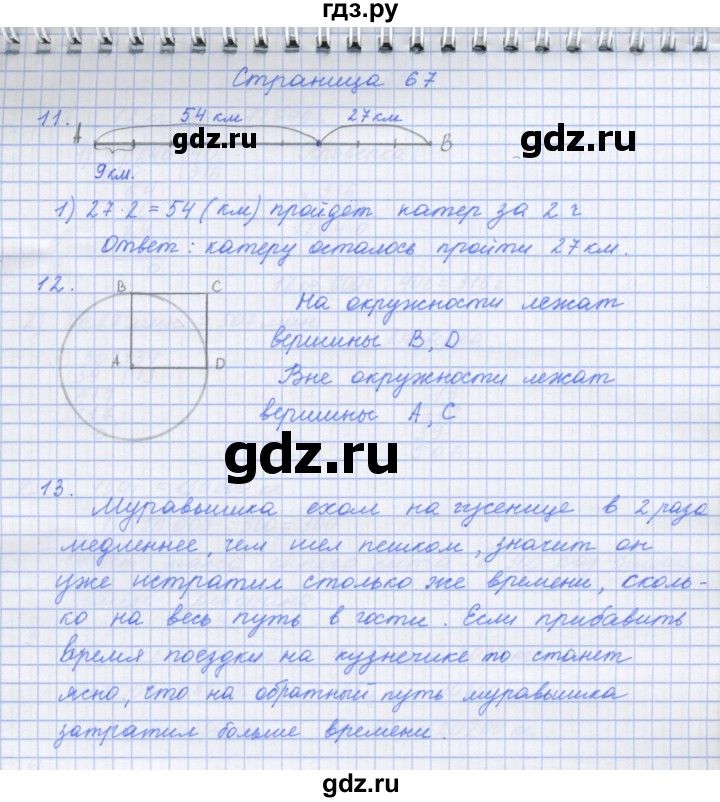 гдз.ру
Страница 67
11. А 54 км 27 км В
gdz.ru gdz.ru
9 км.
1) 27·2 = 54 (км) пройдет катер за 2 ч
Ответ: катеру осталось пройти 27 км.
12. B C
На окружности лежат
вершины B, D
A D
Вне окружности лежат
вершины A, C
gdz.ru
13.
Муравьишка ехал на гусенице в 2 раза
медленнее, чем шел пешком, значит он
уже истратил столько же времени, сколь-
ко на весь путь в гости. Если прибавить
время поездки на кузнечике то станет
ясно, что на обратный путь муравьишка
затратил больше времени.
gdz.ru